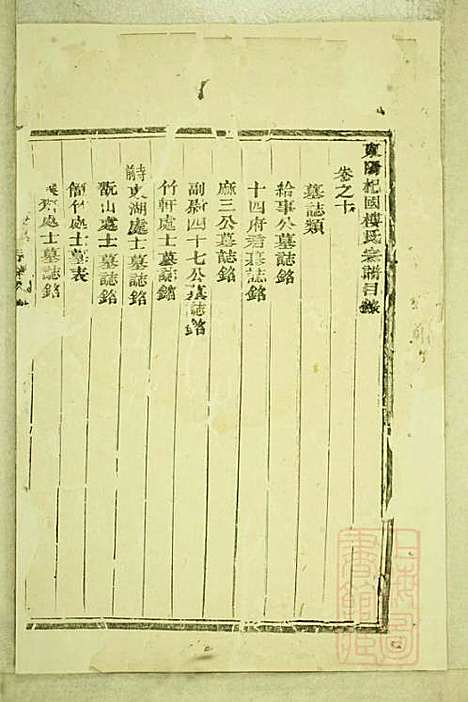 東陽杞國樓氏宗譜目錄
卷之十
墓誌類
給事公墓誌銘
十四府君墓誌銘
麻三公墓誌銘
副尉四十七公墓誌銘
竹軒處士墓誌銘
峙東湖處士墓誌銘
山處士墓誌銘
竹處士墓表
齋處士墓誌銘